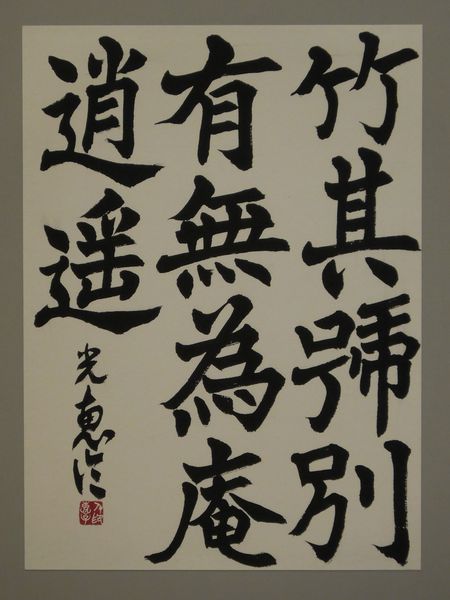 竹其號別
有無為庵
逍遥
光恵作